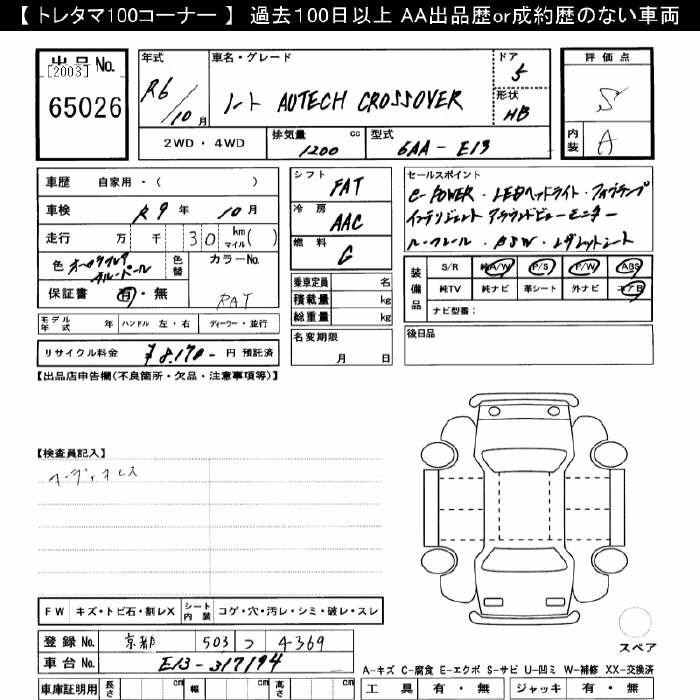 【 トレタマ100コーナー 】 過去100日以上 AA出品歴or成約歴のない車両
出品 No.
[2003]
65026
年式
R6/10月
車名・グレード
ノート AUTECH CROSSOVER
ドア
5
形状
HB
2WD・4WD
排気量 cc
1200
型式
6AA-E13
評価点
S
内装 A
車歴 自家用・( )
車検 R9年 10月
走行 万 千 30 km マイル( )
色
色替
カラーNo.
RAT
保証書 有・無
モデル年式 年 ハンドル 左・右 ディーラー・並行
リサイクル料金 ¥8,170- 円 預託済
シフト FAT
冷房 AAC
燃料 G
乗車定員 名
積載量 kg
総重量 kg
名変期限
月 日
セールスポイント
e-POWER・LEDヘッドライト・フォグランプ
インテリジェント アラウンドビューモニター
ルーフレール・BSW・レザレットシート
装備品
S/R 純A/W P/S P/W ABS
純TV 純ナビ 革シート 外ナビ エアB
ナビ型番:
後日品
【出品店申告欄(不良箇所・欠品・注意事項等)】
【検査員記入】
オーディオレス
FW キズ・トビ石・割レX シート内装 コゲ・穴・汚レ・シミ・破レ・スレ
登録 No. 京都 503 つ 4369
車台 No. E13-317194
車庫証明用 長さ cm 幅 cm 高さ cm
スペア
A-キズ C-腐食 E-エクボ S-サビ U-凹ミ W-補修 XX-交換済
工具 有・無 ジャッキ 有・無